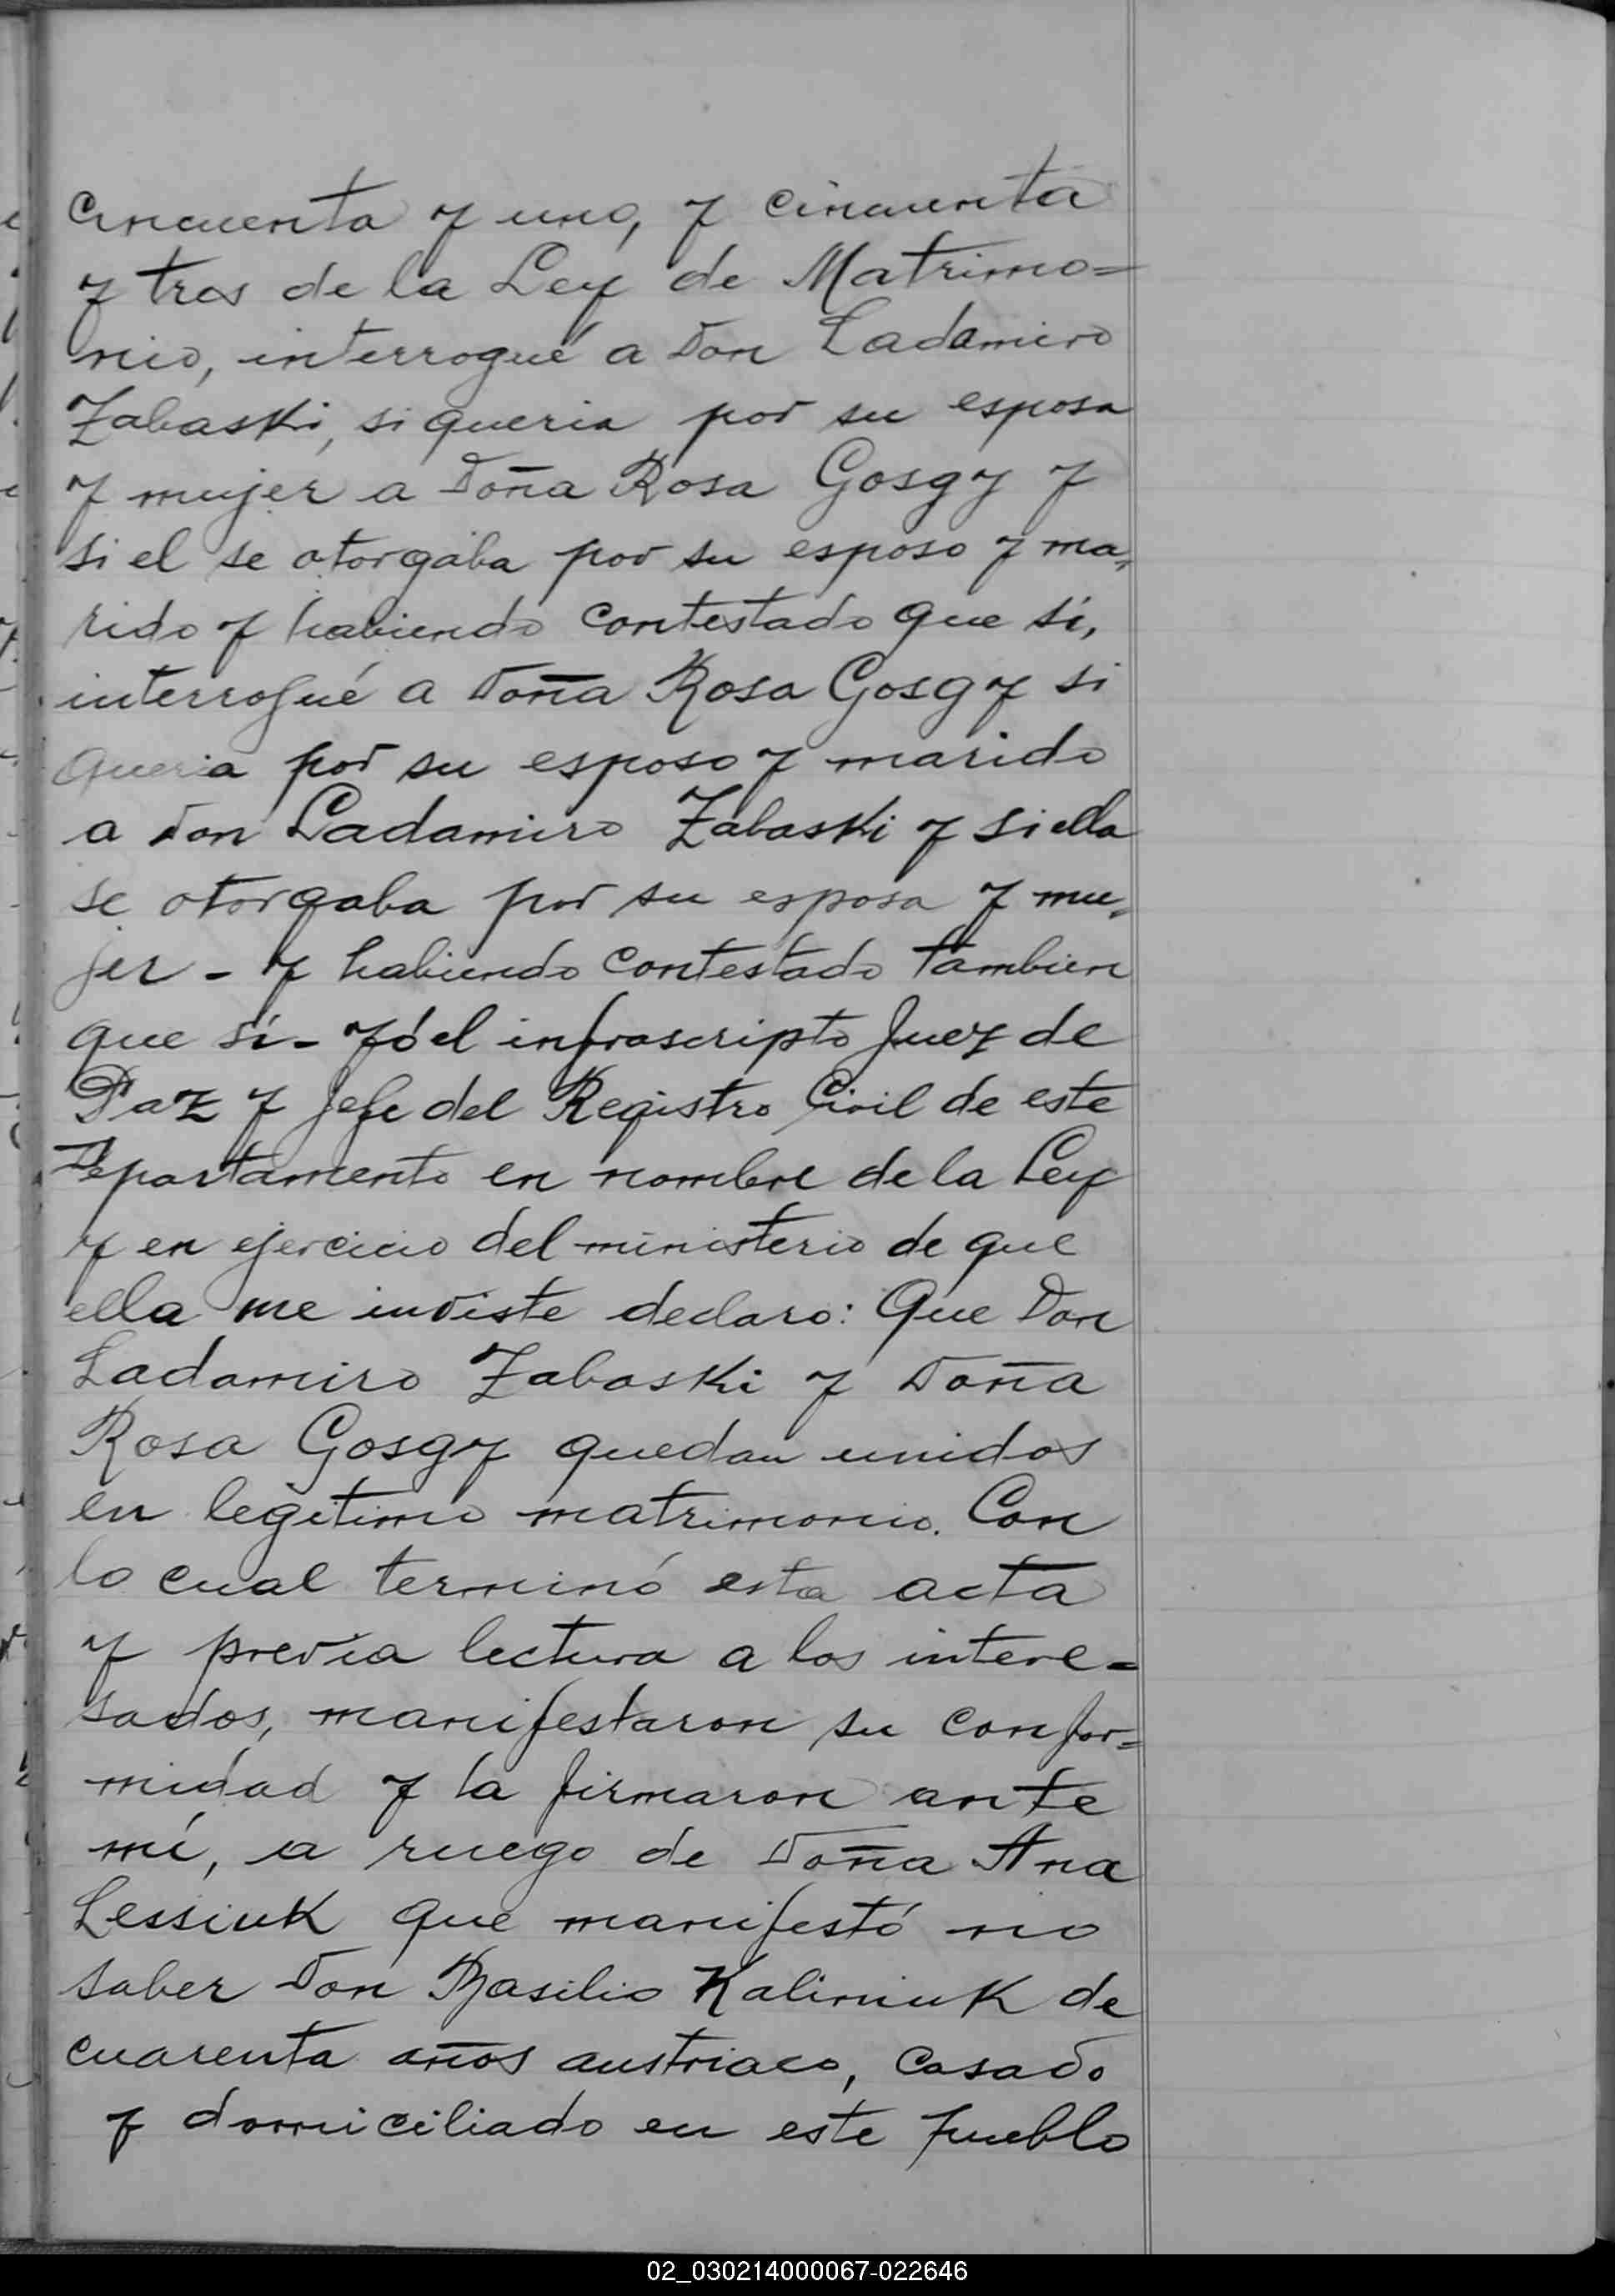 cincuenta y uno, y cincuenta
y tres de la Ley de Matrimo=
nio, interrogué a Don Ladamiro
Zabaski, si queria por su esposa
y mujer a Doña Rosa Gosgy y
si el se otorgába por su esposo y ma„
rido y habiendo contestado que sí,
interrogué a Doña Rosa Gosgy si
queria por su esposo y marido
a Don Ladamiro Zabaski y si ella
se otorgaba por su esposa y mu„
jer - y habiendo contestado tambien
que sí - yó el infrascripto Juez de
Paz y Jefe del Registro Civil de este
Departamento en nombre de la Ley
y en ejercicio del ministerio de que
ella me inviste declaro: Que Don
Ladamiro Zabaski y Doña
Rosa Gosgy quedan unidos
en legitimo matrimonio. Con
lo cual terminó esta acta
y previa lectura a los intere=
sados, manifestaron su confor=
midad y la firmaron ante
mí, a ruego de Doña Ana
Lessiuk que manifestó no
saber Don Basilio Kaliniuk de
cuarenta años austriaco, casado
y domiciliado en este pueblo
02_030214000067-022646